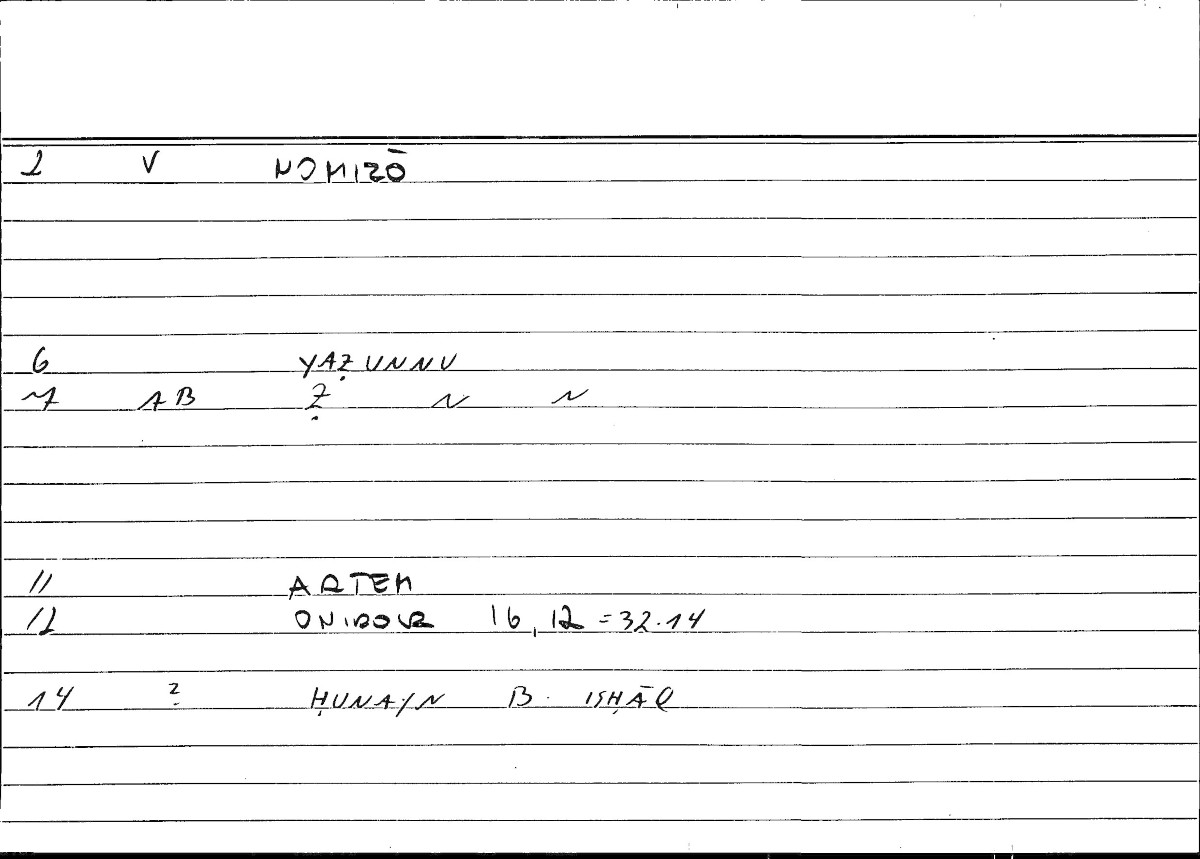 2 V NOMIZŌ
6 YAẒUNNU
7 AB Ẓ N N
11 ARTEM
12 ONIROCR 16,12=32.14
14 ? ḤUNAYN B. ISḤĀQ